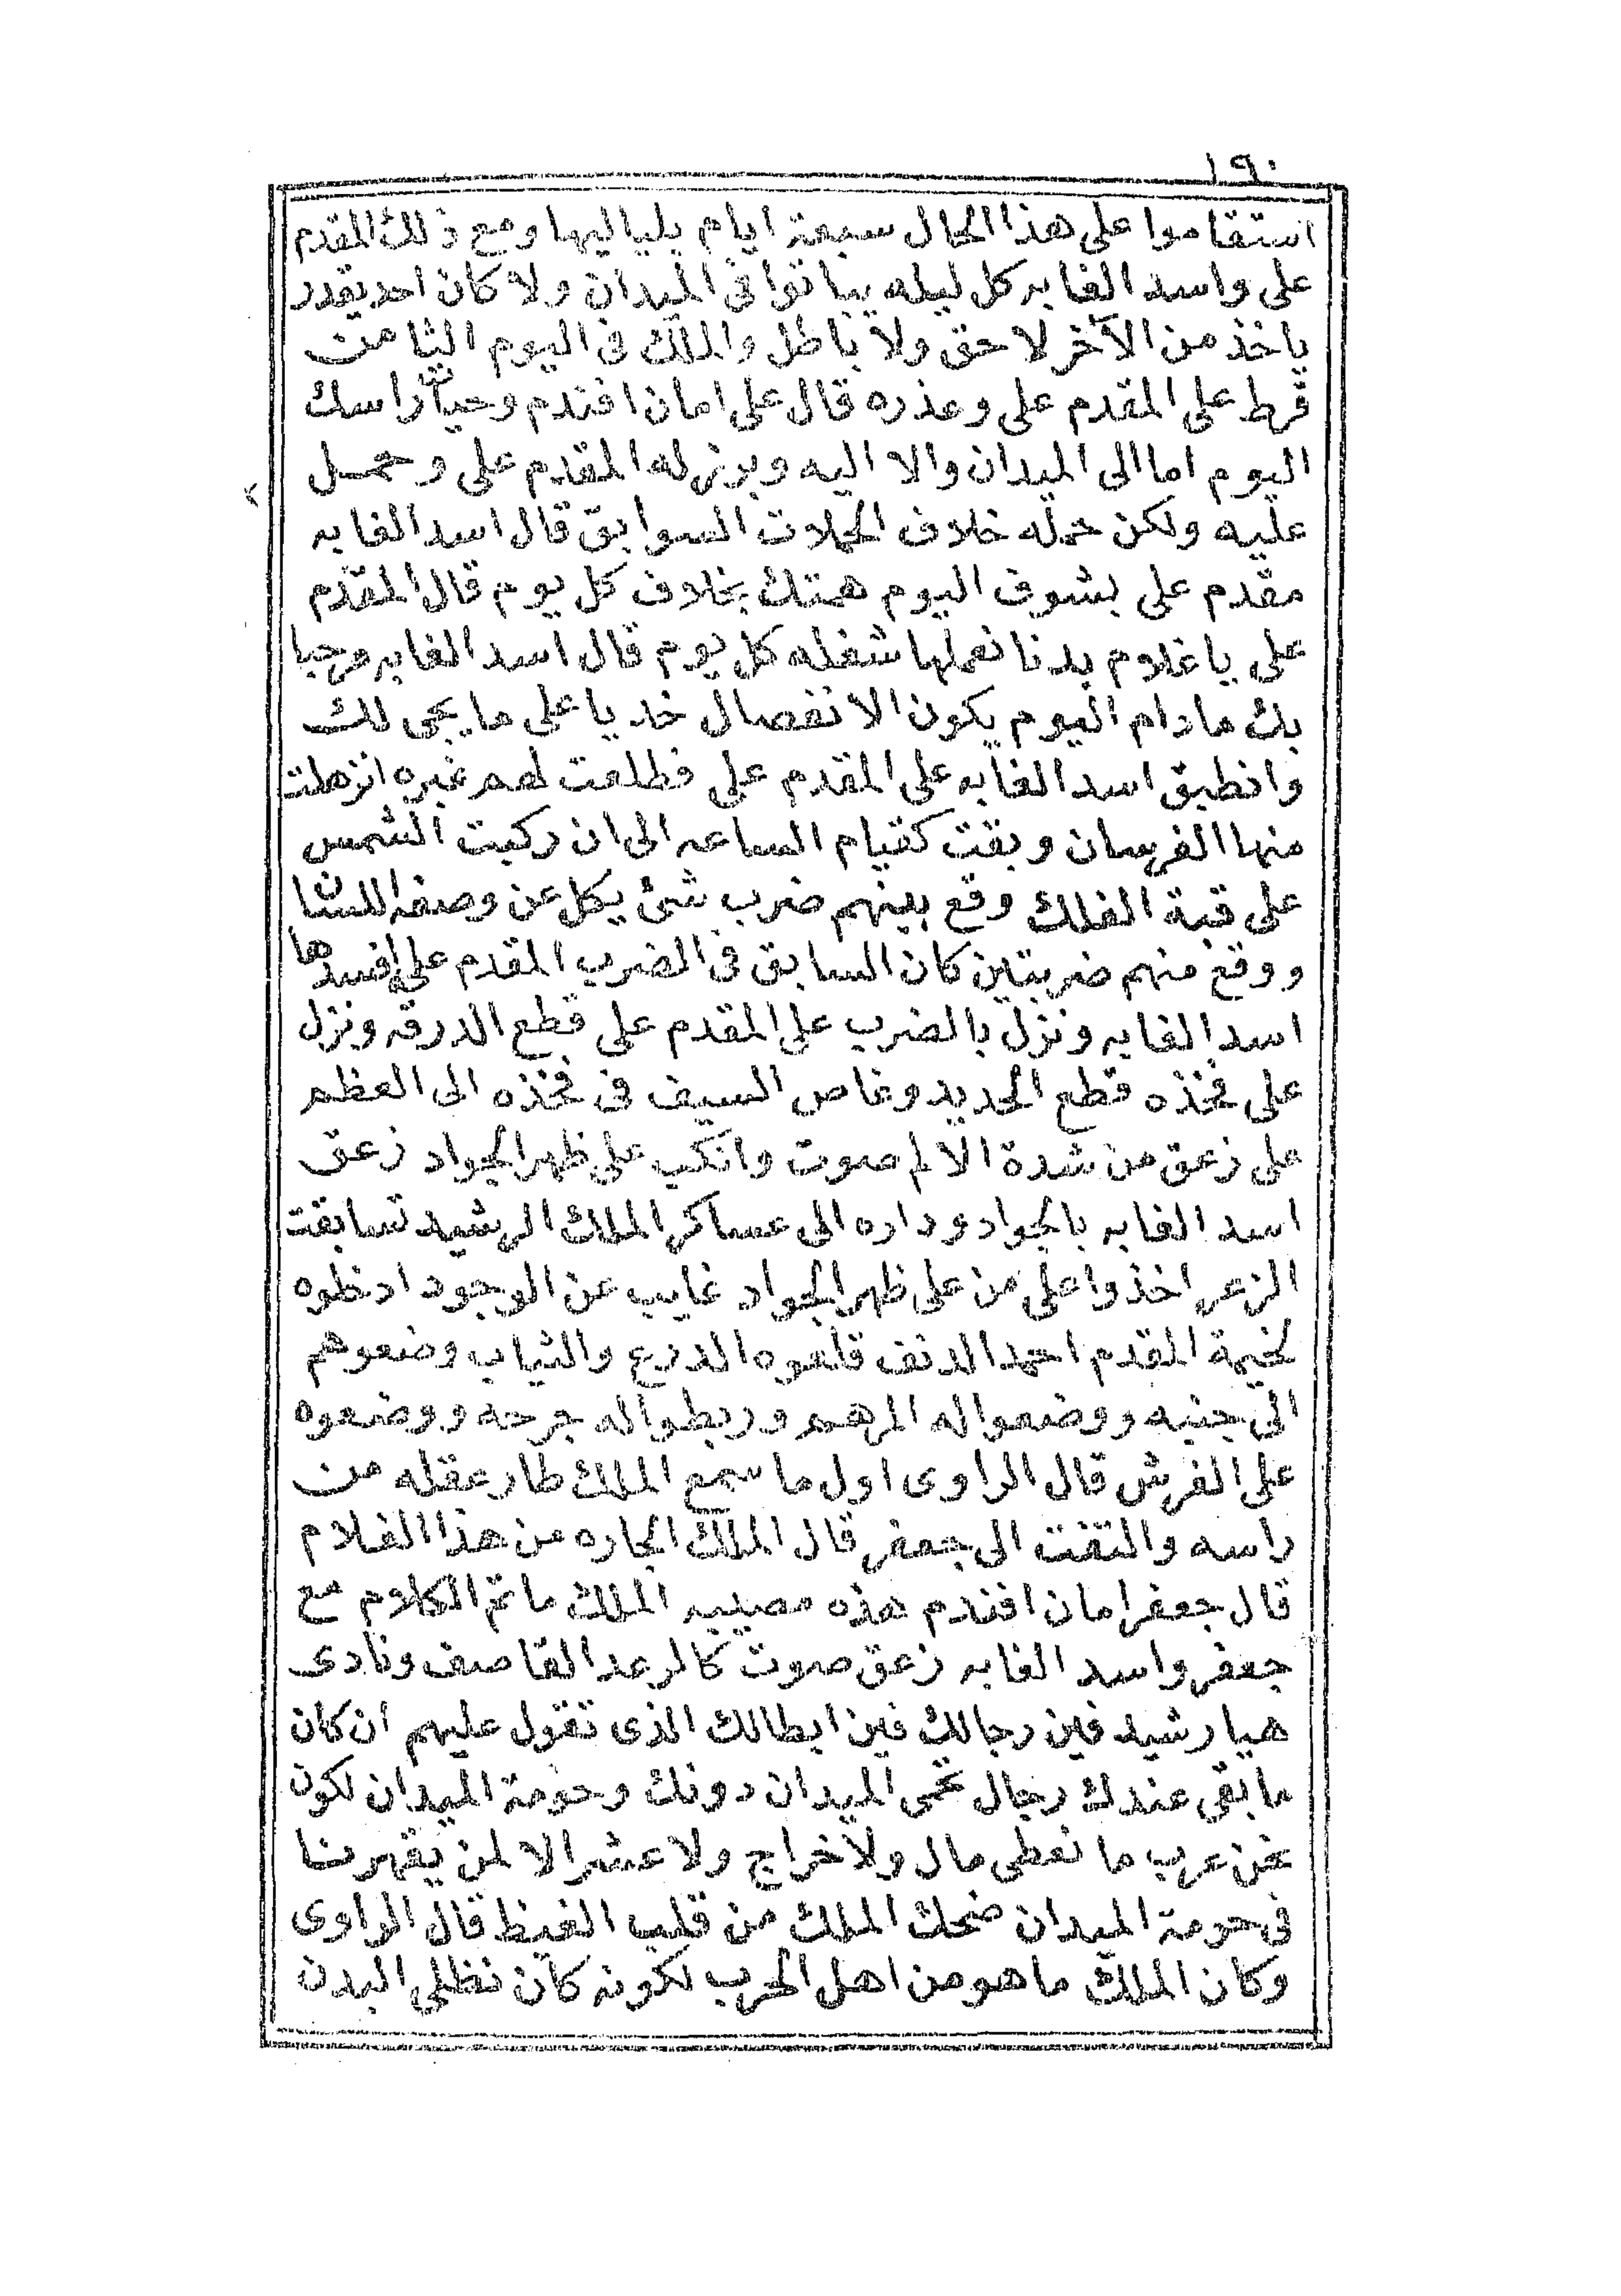 ١٩٠
استقاموا على هذا الحال سبعة ايام بلياليها ومع ذلك المقدم
على واسد الغابه كل ليله يباتوا في الميدان ولا كان احد يقدر
ياخذ من الآخر لا حق ولا باطل والملك في اليوم الثامن
قرط على المقدم على وعذره قال على امان افندم وحياة راسك
اليوم اما الى الميدان والا اليه وبرز له المقدم على وحمل
عليه ولكن حمله خلاف الحملات السوابق قال اسد الغابه
مقدم على بشوف اليوم همتك بخلاف كل يوم قال المقدم
على يا غلام بدنا نعملها شغله كل يوم قال اسد الغابه مرحبا
بك ما دام اليوم يكون الانفصال خد يا على ما يجى لك
وانطبق اسد الغابه على المقدم على فطلعت لهم غبره انزهلت
منها الفرسان وبقت كقيام الساعه الى ان ركبت الشمس
على قبة الفلك وقع بينهم ضرب شئ يكل عن وصفه اللسان
ووقع منهم ضربتين كان السابق في الضرب المقدم على افسدها
اسد الغابه ونزل بالضرب على المقدم على قطع الدرقه ونزل
على فخذه قطع الحديد وغاص السيف في فخذه الى العظم
على زعق من شدة الالم صوت وانكب على ظهر الجواد زعق
اسد الغابه بالجواد وداره الى عساكر الملك الرشيد تسابقت
الزعر اخذوا على من على ظهر الجواد غايب عن الوجود ادخلوه
لخيمة المقدم احمد الدنف قلعوه الدرع والثياب وضعوهم
الى جنبه ووضعوا له المرهم وربطوا له جرحه ووضعوه
على الفرش قال الراوى اول ما سمع الملك طار عقله من
راسه والتفت الى جعفر قال الملك الجاره من هذا الغلام
قال جعفر امان افندم هذه مصيبه الملك ما تم الكلام مع
جعفر واسد الغابه زعق صوت كالرعد القاصف ونادى
هيا رشيد فين رجالك فين ابطالك الذى تقول عليهم ان كان
ما بقى عندك رجال تحمى الميدان دونك وحومة الميدان لكون
نحن عرب ما نعطى مال ولا خراج ولا عشر الا لمن يقهرنا
في حومة الميدان ضحك الملك من قلب الغيظ قال الراوى
وكان الملك ما هو من اهل الحرب لكونه كان نظلى البدن